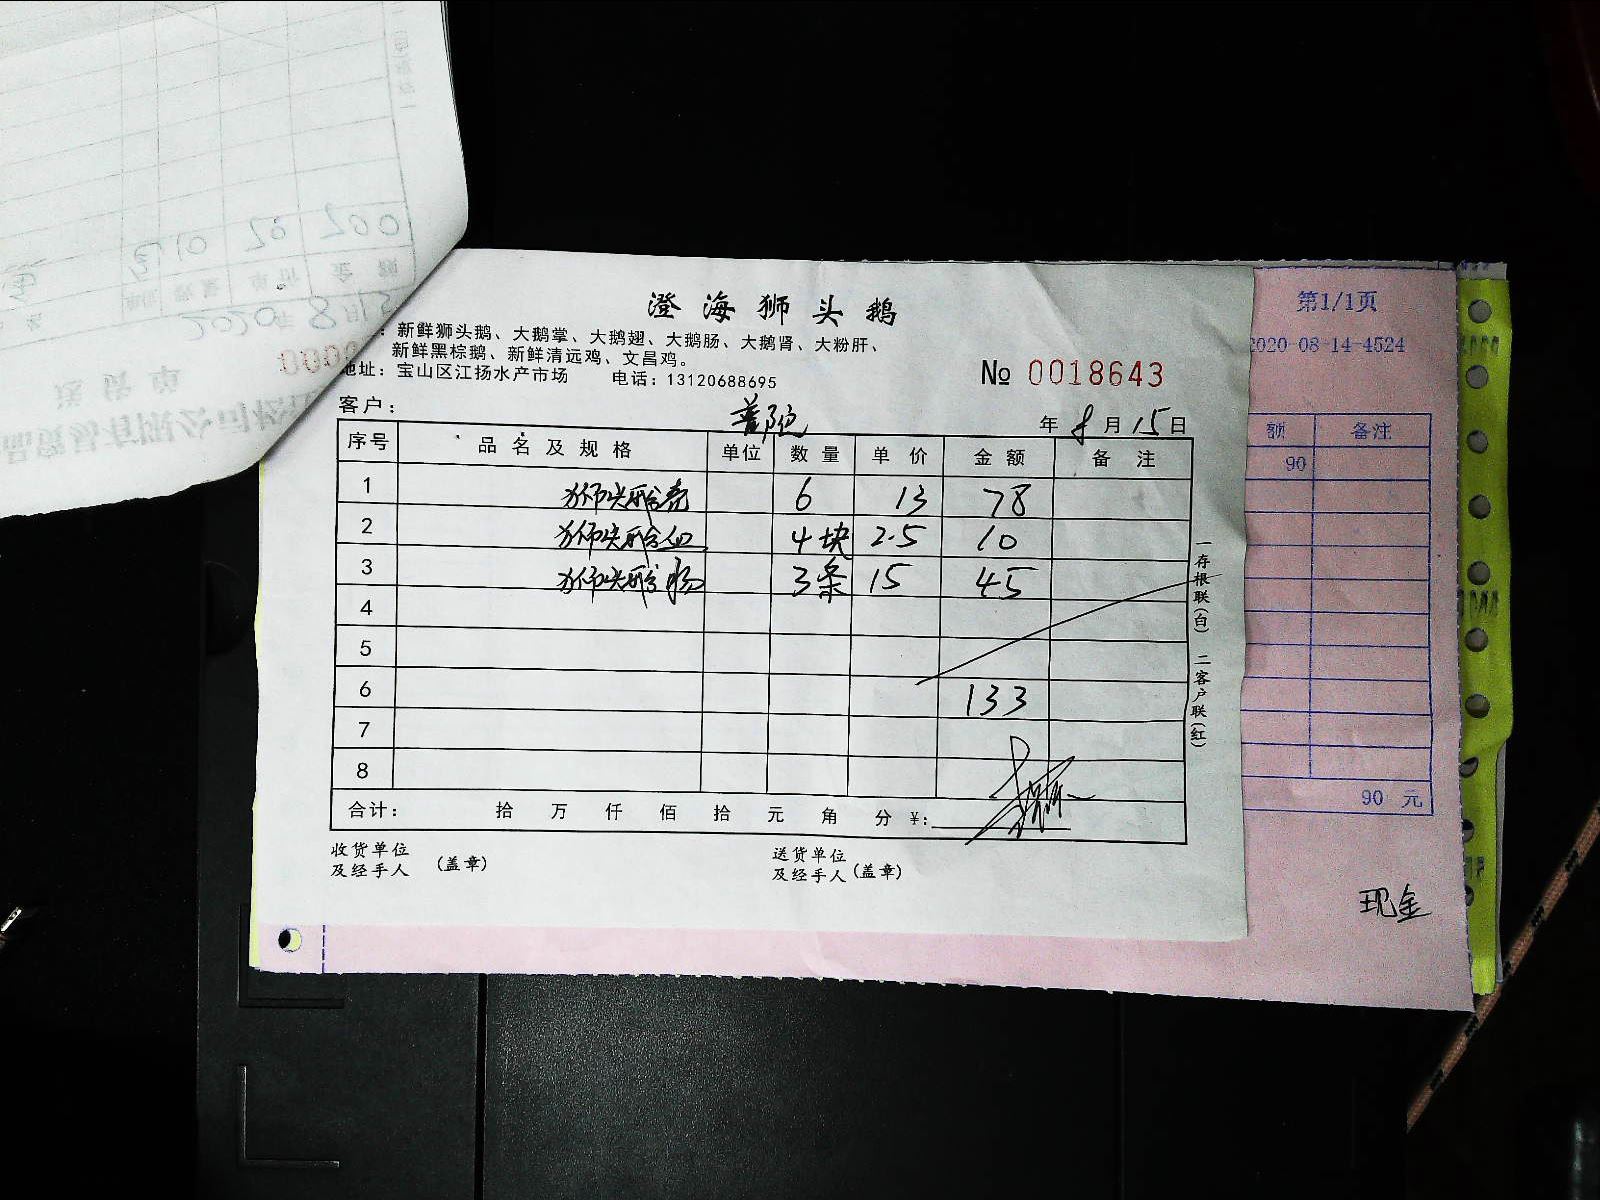 澄海狮头鹅
：新鲜狮头鹅、大鹅掌、大鹅翅、大鹅肠、大鹅肾、大粉肝、
新鲜黑棕鹅、新鲜清远鸡、文昌鸡。
地址：宝山区江扬水产市场 电话：13120688695
№ 0018643
客户：
年 8 月 15 日
序号 品名及规格 单位 数量 单价 金额 备注
1 狮头鹅 6 13 78
2 狮头鹅血 4块 2.5 10
3 狮头鹅肠 3条 15 45
4
5
6 133
7
8
合计： 拾 万 仟 佰 拾 元 角 分 ¥：
收货单位
及经手人 （盖章）
送货单位
及经手人（盖章）
一存根联（白） 二客户联（红）
第1/1页
2020-08-14-4524
额 备注
90
90 元
现金
送货单
2020年8月15
金额
200